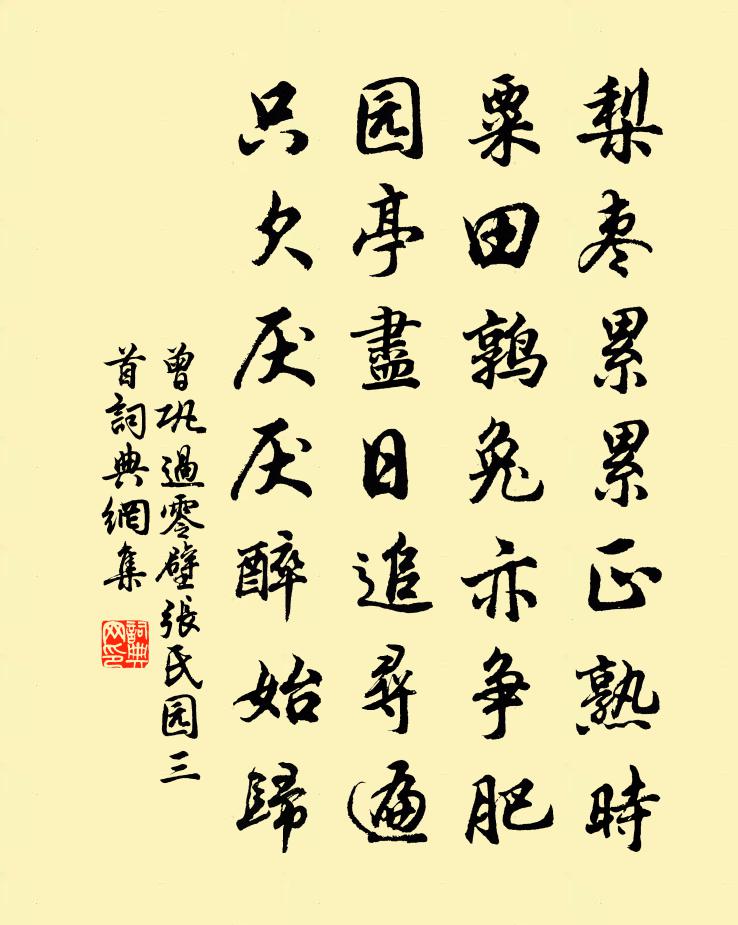 梨枣累累正熟時
粟田鹑兔亦争肥
园亭盡日追尋遍
只欠厌厌醉始歸
曾巩過零壁張氏园三
首詞典網集
詞典网印